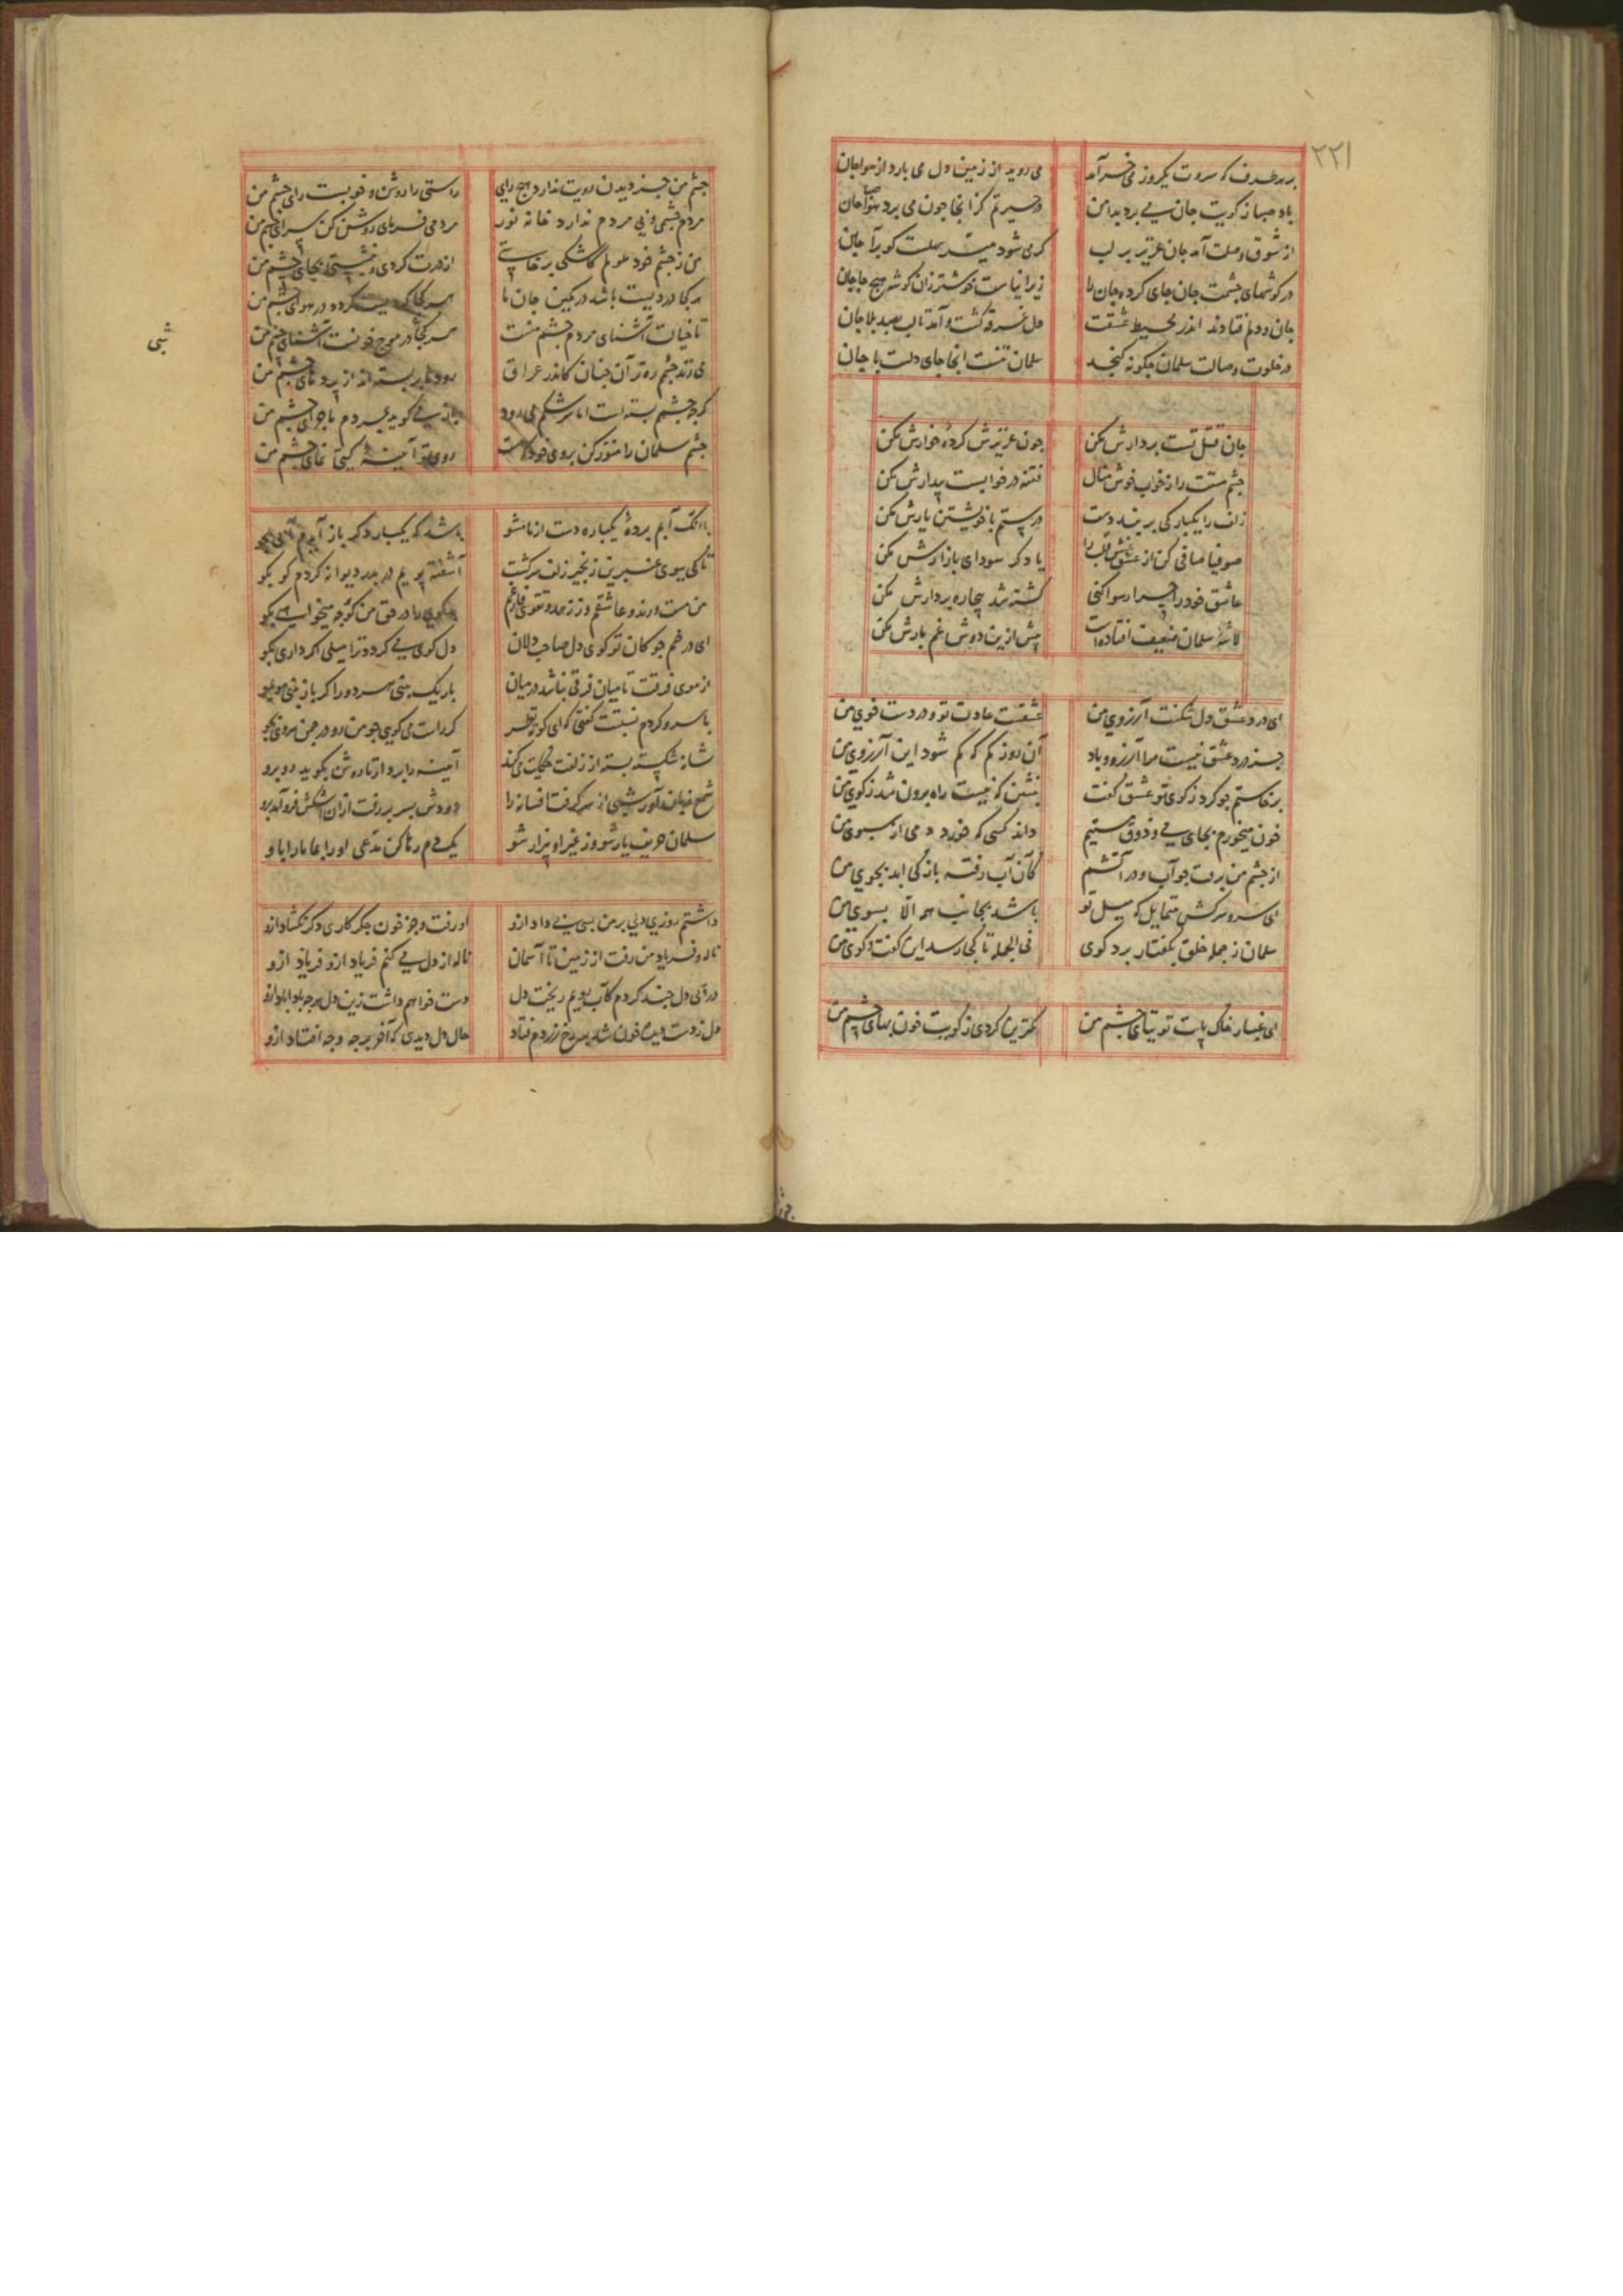 ۲۲۱
بر هر طرف که سروت یکروز می خرامد می روید از زمین دل می بارد از هوا جان
باد صبا ز کویت جان می برد بدامن در حیرتم کز آنجا چون می برد صبا جان
از شوق وصلت آمد جان عزیز بر لب گر می شود میسر وصلت گو برآ جان
در گوشهای چشمت جان جای کرده جان را زیرا نیافت خوشتر زان گوشه هیچ جا جان
جان و دلم فتادند اندر محیط عشقت دل غرقه گشت و آمد تا لب بصد بلا جان
در خلوت وصالت سلمان چگونه گنجد سلمان تنست آنجا جای دلست یا جان
جان قتل تست بردارش مکن چون عزیزش کردۀ خوارش مکن
چشم مستت را ز خواب خوش ممال فتنه در خوابست بیدارش مکن
زلف را یکبارگی بر بند دست در ستم با خویشتن یارش مکن
صوفیا صافی کن از غش قلب را یا دگر سودای بازارش مکن
عاشق خود را چرا رسوا کنی کشته شد بیچاره بردارش مکن
لاشۀ سلمان ضعیف افتاده است بیش ازین دوش غم بارش مکن
ای درد عشق دل شکنت آرزوی من عشقت عادت تو و دردت خوی من
جز درد عشق نیست مرا آرزو و باد آن روز کم که کم شود این آرزوی من
برخاستم چو گرد ز کوی تو عشق گفت بنشین که نیست راه برون شد ز کوی من
خون میخورم بجای می و ذوق مستیم داند کسی که خورد دمی از سبوی من
از چشم من برفت چو آب و در آتشم کان آب رفته باز کی آید بجوی من
ای سرو سرکش متمایل که میل تو باشد بجانب همه الا بسوی من
سلمان ز جمله خلق بگفتار برد گوی فی الجمله تا کجا رسد این گفت و گوی من
ای غبار خاک پایت توتیای چشم من کمترین گردی ز کویت خون بهای چشم من
چشم من جز دیدن رویت ندارد هیچ رای راستی را روشن و خوبست رای چشم من
مردم چشمی و بی مردم ندارد خانه نور مردمی فرمای و روشن کن سرای چشم من
من ز چشم خود ملولم کاشکی برخاستی از درت گردی و بنشستی بجای چشم من
هر کجا دردیست باشد در کمین جان ما هر کجا گردیست گرده در هوای چشم من
تا خیالت آشنای مردم چشم منست هر کجا در موج خونست آشنای چشم من
می زند چشم ره تر آن چنان کاندر عراق رودها بر بسته اند از پرده های چشم من
گرچه چشمم بسته است اما سرشکم می رود باز می گوید بمردم ماجرای چشم من
چشم سلمان را منور کن بروی خود که هست روی تو آیینۀ گیتی نمای چشم من
با آنک آبم بردۀ یکباره دست از ما مشو باشد که یکبار دگر باز آیدم آبی بجو
تا کی ببوی عنبرین زنجیر زلف سرکشت آشفته پویم در بدر دیوانه گردم کو بکو
من مست و رند و عاشقم وز زهد و تقوی فارغم بدگوی را در حق من گو هر چه میخواهی بگو
ای در خم چوگان تو گوی دل صاحب دلان دل گوی می گردد ترا میلی اگر داری بگو
از موی فرقت تا میان فرقی نباشد در میان باریک بینی هر دو را گر باز بینی مو بمو
با سرو کردم نسبتت گفتی که ای کوته نظر گر راست می گویی چو من رو در چمن سروی بجو
شانه شکسته بسته از زلفت حکایت می کند آیینه را بردار تا روشن بگوید رو برو
شمع زبان آور شبی از سر گرفت افسانه را دودش بسر بر رفت ازان اشکش فرو آمد برو
سلمان حریف یار شو وز غیر او بیزار شو یک دم رها کن مدعی او را بما ما را باو
داشتم روزی دلی بر من بسی بیداد ازو او رفت و جز خون جگر کاری دگر نگشاد ازو
ناله و فریاد من رفت از زمین تا آسمان ناله از دل می کنم فریاد ازو فریاد ازو
در پی دل چند گردم کآب رویم ریخت دل دست خواهم داشت زین دل هرچه بادا باد ازو
دل ز دست دیده خون شد بر رخ زردم فتاد حال دل دیدی که آخر بر چه وجه افتاد ازو
شبی